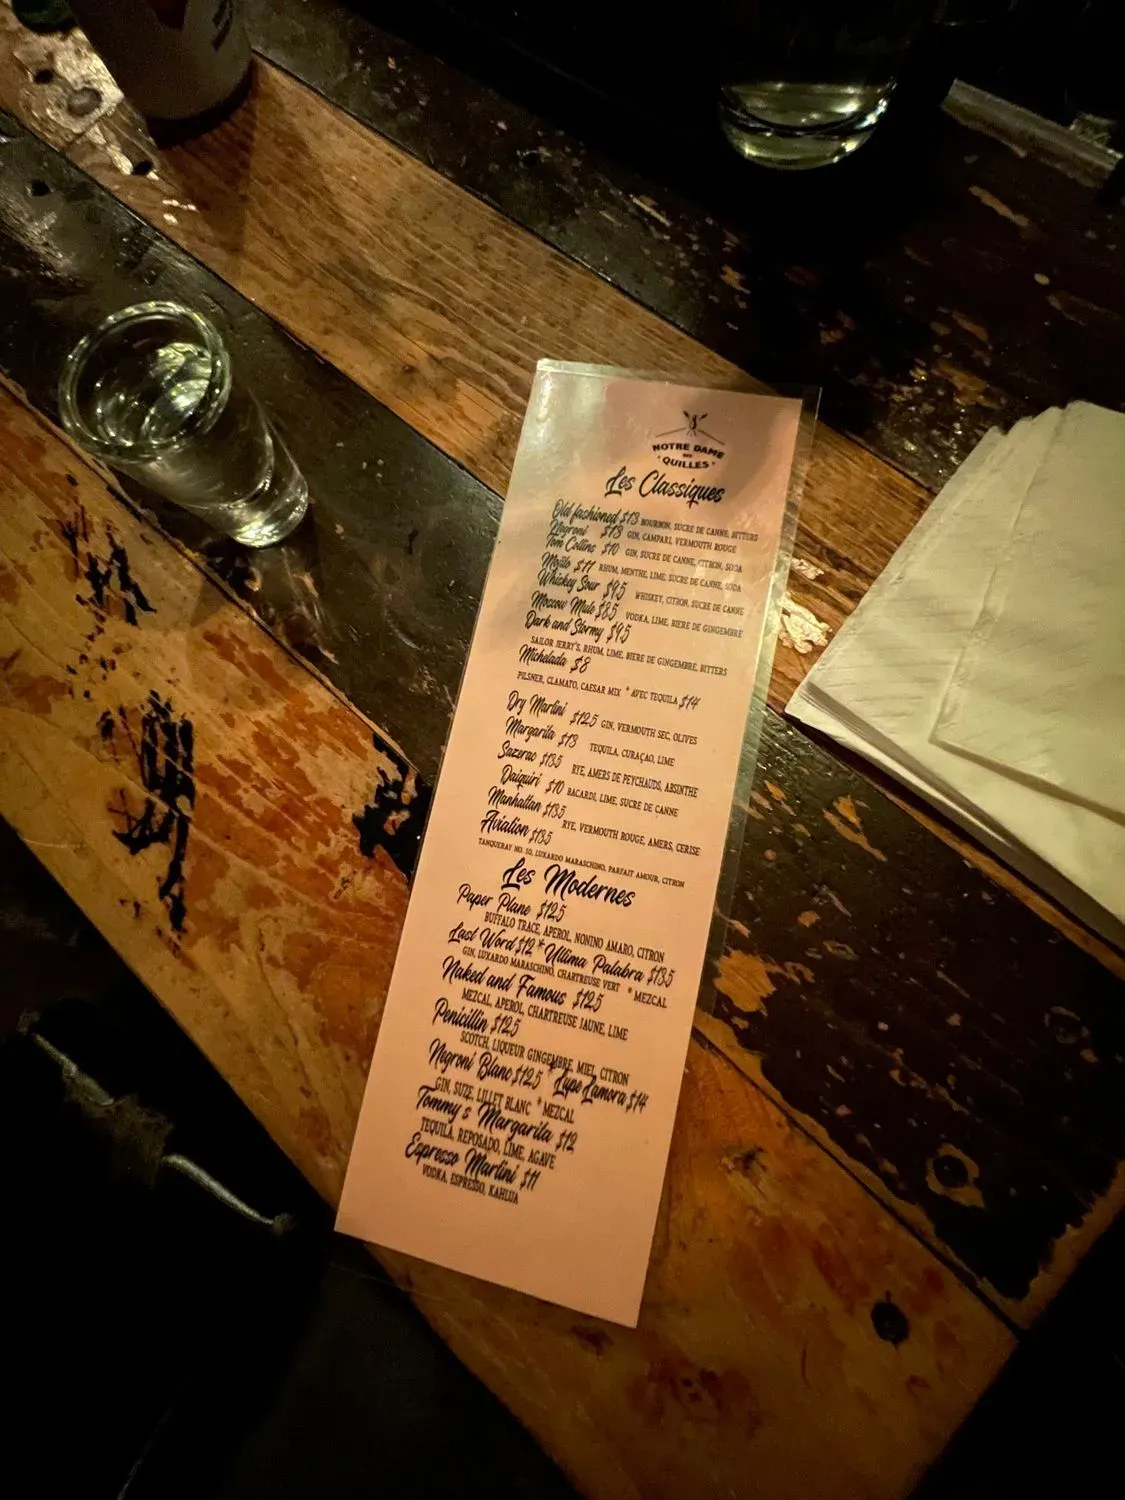 NOTRE DAME
DES
QUILLES
Les Classiques
Old fashioned $13 BOURBON, SUCRE DE CANNE, BITTERS
Negroni $13 GIN, CAMPARI, VERMOUTH ROUGE
Tom Collins $10 GIN, SUCRE DE CANNE, CITRON, SODA
Mojito $11 RHUM, MENTHE, LIME, SUCRE DE CANNE, SODA
Whiskey Sour $9.5 WHISKEY, CITRON, SUCRE DE CANNE
Moscow Mule $8.5 VODKA, LIME, BIERE DE GINGEMBRE
Dark and Stormy $9.5
SAILOR JERRY'S, RHUM, LIME, BIERE DE GINGEMBRE, BITTERS
Michelada $8
PILSNER, CLAMATO, CAESAR MIX * AVEC TEQUILA $14
Dry Martini $12.5 GIN, VERMOUTH SEC, OLIVES
Margarita $13 TEQUILA, CURAÇAO, LIME
Sazerac $13.5 RYE, AMERS DE PEYCHAUDS, ABSINTHE
Daiquiri $10 BACARDI, LIME, SUCRE DE CANNE
Manhattan $13.5 RYE, VERMOUTH ROUGE, AMERS, CERISE
Aviation $13.5
TANQUERAY NO. 10, LUXARDO MARASCHINO, PARFAIT AMOUR, CITRON
Les Modernes
Paper Plane $12.5
BUFFALO TRACE, APEROL, NONINO AMARO, CITRON
Last Word $12 * Ultima Palabra $13.5
GIN, LUXARDO MARASCHINO, CHARTREUSE VERT * MEZCAL
Naked and Famous $12.5
MEZCAL, APEROL, CHARTREUSE JAUNE, LIME
Penicillin $12.5
SCOTCH, LIQUEUR GINGEMBRE, MIEL, CITRON
Negroni Blanc $12.5 * Lupe Lamora $14
GIN, SUZE, LILLET BLANC * MEZCAL
Tommy's Margarita $12
TEQUILA, REPOSADO, LIME, AGAVE
Espresso Martini $11
VODKA, ESPRESSO, KAHLUA